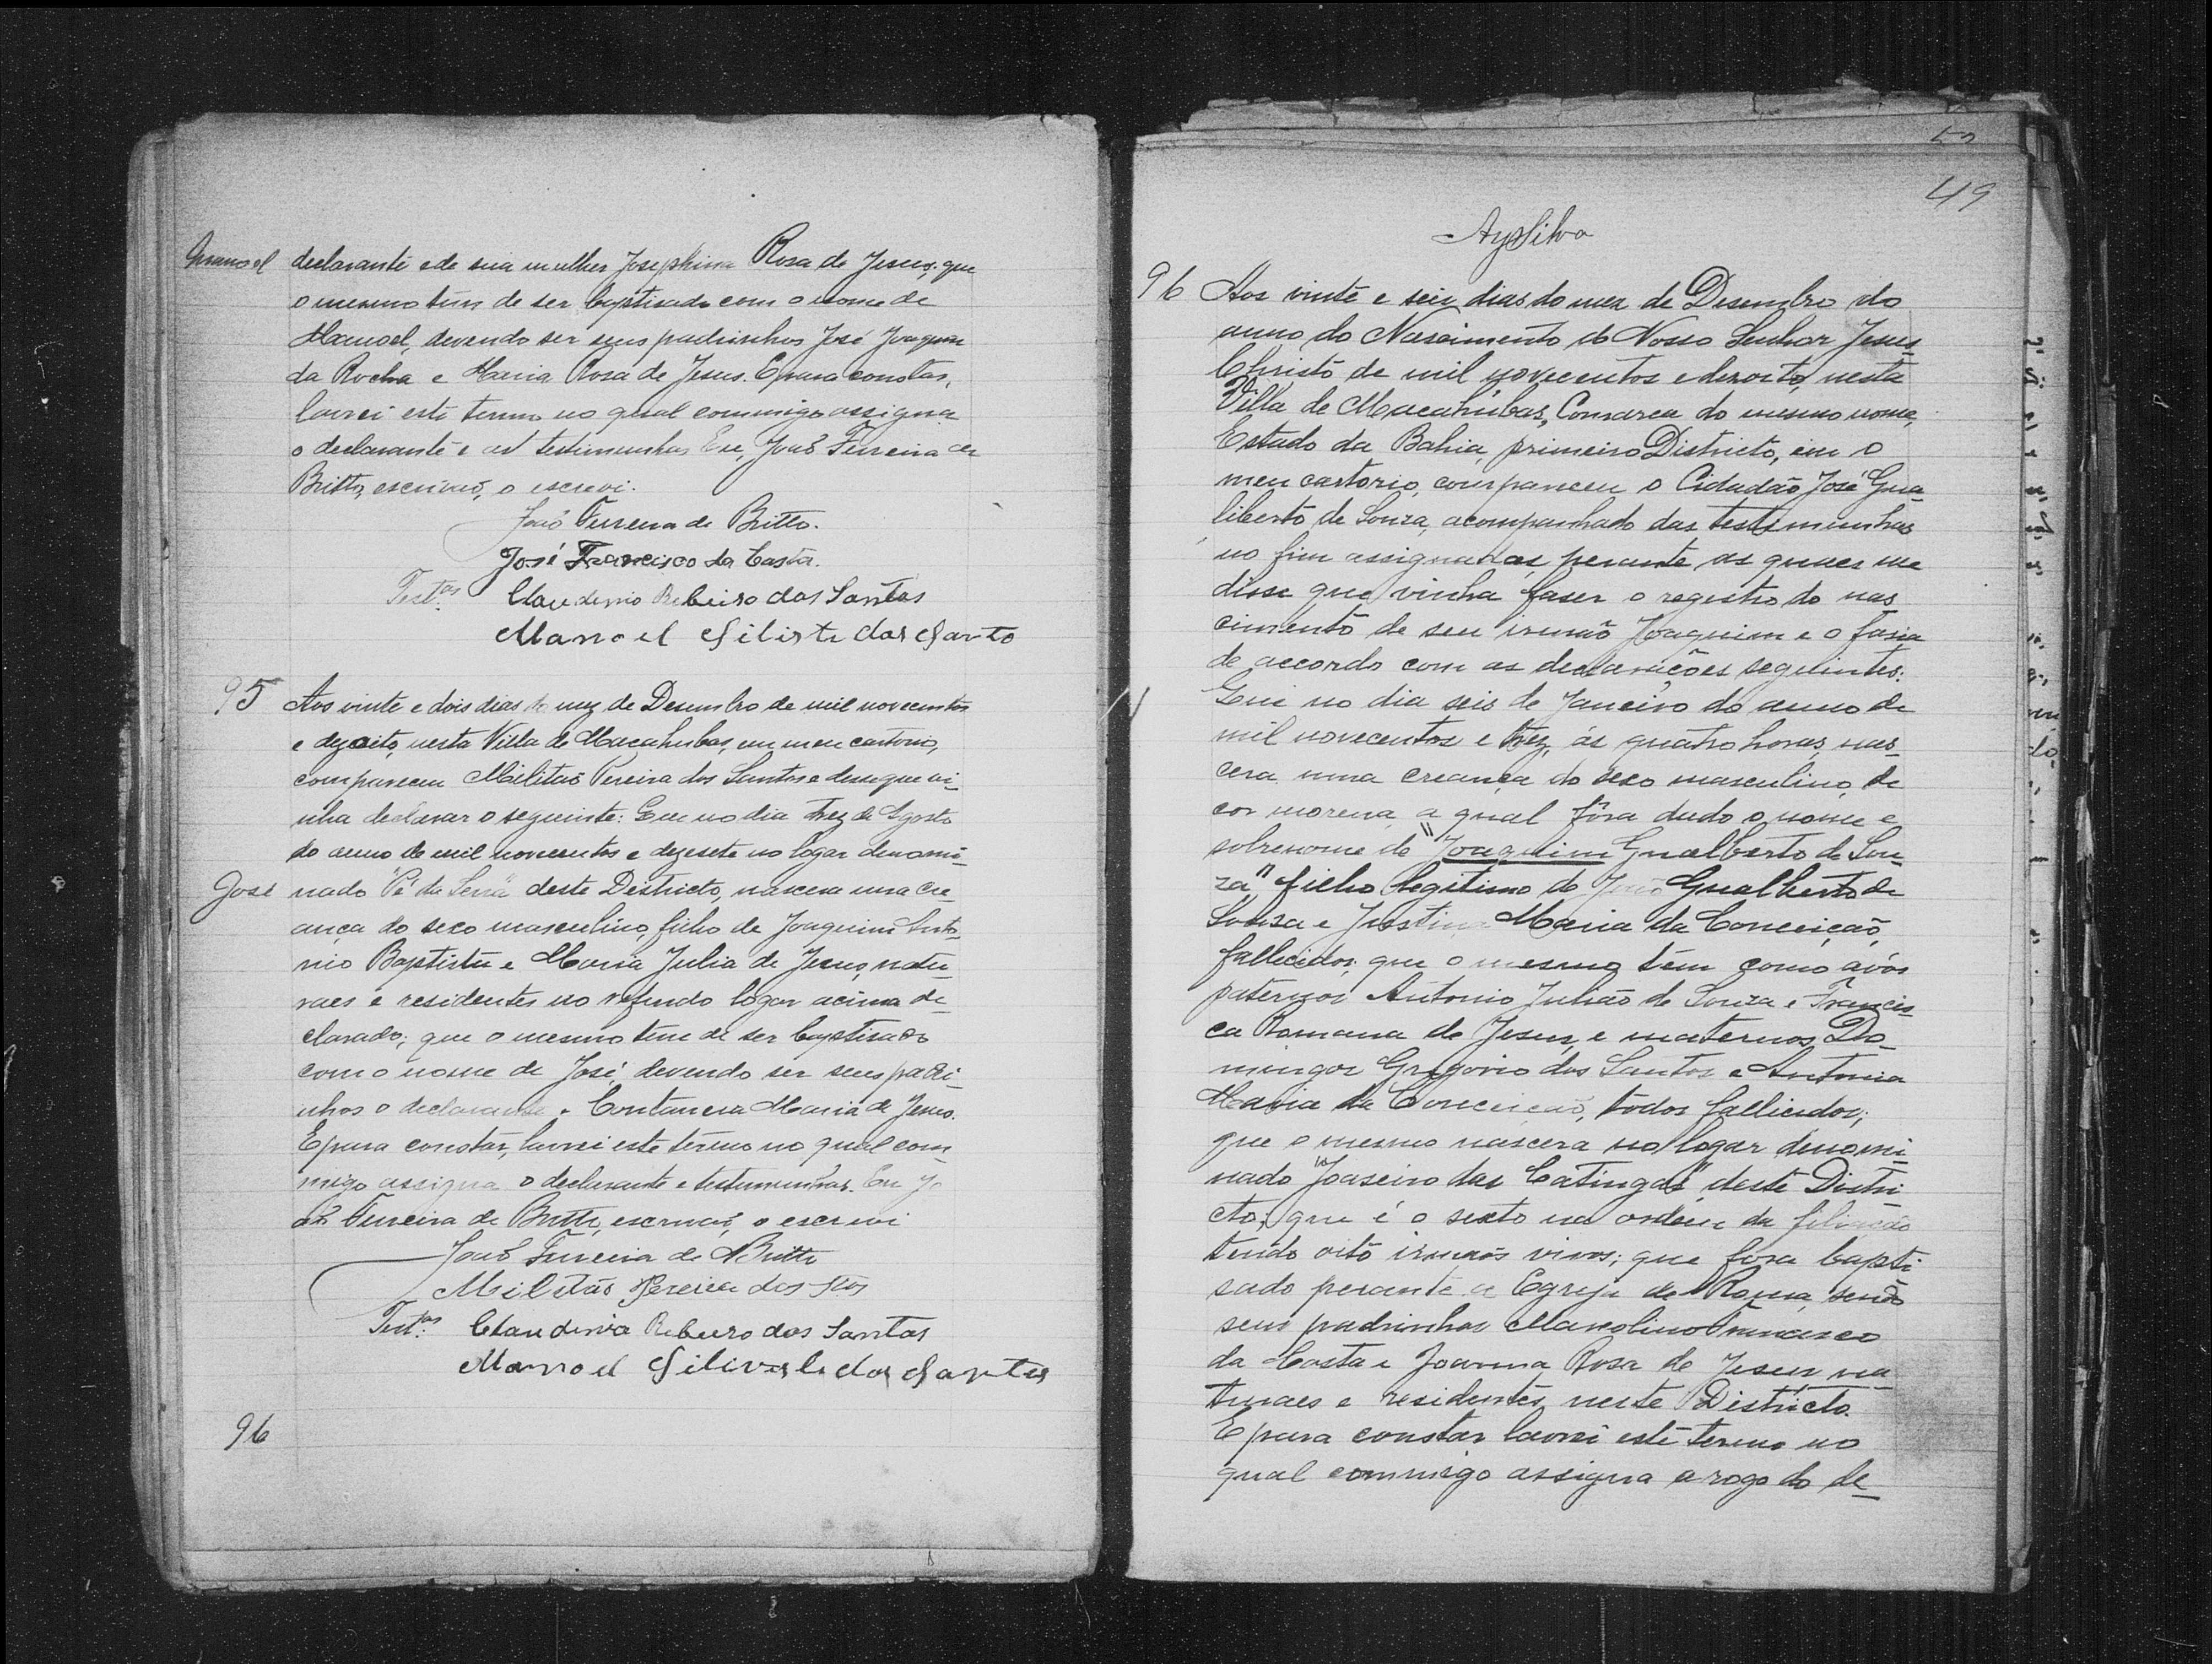 Manoel declarante e de sua mulher Josephina Rosa de Jesus; que
o mesmo tem de ser baptisado com o nome de
Manoel, devendo ser seus padrinhos José Joaquim
da Rocha e Maria Rosa de Jesus. E para constar,
lavrei este termo no qual commigo assigna
o declarante e as testimunhas. Eu, João Ferreira de
Britto, escrivão, o escrevi.
João Ferreira de Britto.
José Francisco da Costa.
Test.as Claudemio Ribeiro dos Santos
Manoel dos Santo
95 Aos vinte e dois dias do mez de Desembro de mil novecentos
e dezoito, nesta Villa de Macahubas, em meu cartorio,
compareceu Militão Pereira dos Santos e disse que vi-
nha declarar o seguinte: Que no dia trez de Agosto
do anno de mil novecentos e dezesete no logar denomi-
José nado "Pé da Serra" deste Districto, nascera uma cre-
ança do sexo masculino, filho de Joaquim Anto-
nio Baptista e Maria Julia de Jesus, natu-
raes e residentes no referido logar acima de-
clarado; que o mesmo tem de ser baptisado
com o nome de José, devendo ser seus padri-
nhos o declarante e Contancia Maria de Jesus.
E para constar, lavrei este termo no qual com-
migo assigna o declarante e testimunhas. Eu Jo
ão Ferreira de Britto, escrivão, o escrevi
João Ferreira de Britto
Militão Pereira dos Stos
Test.as Claudemio Ribeiro dos Santos
Manoel dos Santos
96
52
49
AySilva
96 Aos vinte e seis dias do mez de Desembro do
anno do Nascimento de Nosso Senhor Jesus
Christo de mil novecentos e dezoito, nesta
Villa de Macahúbas, Comarca do mesmo nome,
Estado da Bahia, primeiro Districto, em o
meu cartorio, compareceu o Cidadão José Gua-
liberto de Souza, acompanhado das testimunhas
no fim assignadas, perante as quaes me
disse que vinha faser o registro do nas
cimento de seu irmão Joaquim e o fasia
de accordo com as declarações seguintes:
Que no dia seis de Janeiro do anno de
mil novecentos e trez, ás quatro horas, nas-
cera uma creança do sexo masculino, de
cor morena, a qual fôra dado o nome e
sobrenome de "Joaquim Gualberto de Sou-
za" filho legitimo de João Gualberto de
Souza e Justina Maria da Conceição,
fallecidos; que o mesmo tem como avós
paternos Antonio Julião de Souza e Francis-
ca Romana de Jesus, e maternos Do-
mingos Gregorio dos Santos e Antonia
Maria da Conceição, todos fallecidos;
que o mesmo nascera no logar denomi-
nado "Joaseiro das Catingas" deste Distri
cto; que é o sexto na ordem da filiação
tendo oito irmãos vivos; que fora bapti-
sado perante a Egreja de Roma, sendo
seus padrinhos Marcolino Francisco
da Costa e Joanna Rosa de Jesus na-
turaes e residentes neste Districto.
E para constar lavrei este termo no
qual commigo assigna a rogo do de-